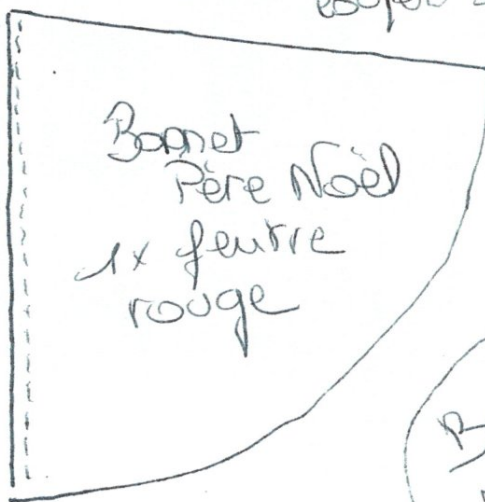 Bonnet
Père Noël
1x feutre
rouge